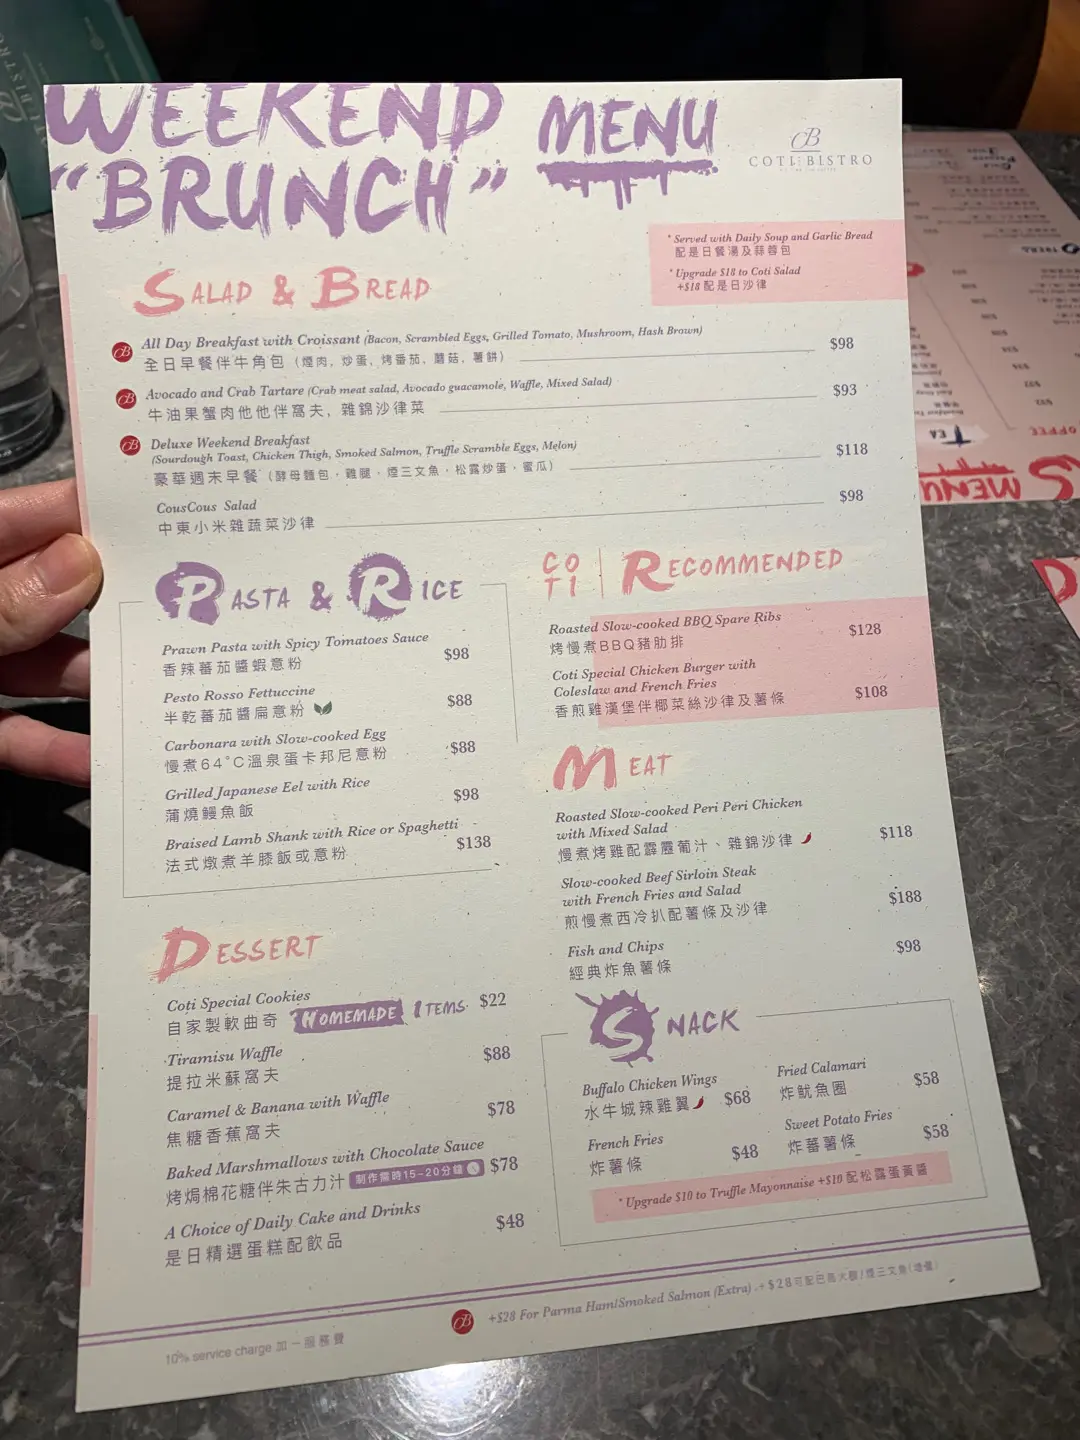 WEEKEND MENU
"BRUNCH"
COTI BISTRO
* Served with Daily Soup and Garlic Bread
配是日餐湯及蒜蓉包
* Upgrade $18 to Coti Salad
+$18 配是日沙律
SALAD & BREAD
All Day Breakfast with Croissant (Bacon, Scrambled Eggs, Grilled Tomato, Mushroom, Hash Brown)
全日早餐伴牛角包 (煙肉, 炒蛋, 烤番茄, 蘑菇, 薯餅) $98
Avocado and Crab Tartare (Crab meat salad, Avocado guacamole, Waffle, Mixed Salad)
牛油果蟹肉他他伴窩夫, 雜錦沙律菜 $93
Deluxe Weekend Breakfast
(Sourdough Toast, Chicken Thigh, Smoked Salmon, Truffle Scramble Eggs, Melon)
豪華週末早餐 (酵母麵包、雞腿、煙三文魚、松露炒蛋、蜜瓜) $118
CousCous Salad
中東小米雜蔬菜沙律 $98
PASTA & RICE
Prawn Pasta with Spicy Tomatoes Sauce
香辣蕃茄醬蝦意粉 $98
Pesto Rosso Fettuccine
半乾蕃茄醬扁意粉 $88
Carbonara with Slow-cooked Egg
慢煮64°C溫泉蛋卡邦尼意粉 $88
Grilled Japanese Eel with Rice
蒲燒鰻魚飯 $98
Braised Lamb Shank with Rice or Spaghetti
法式燉煮羊膝飯或意粉 $138
COTI RECOMMENDED
Roasted Slow-cooked BBQ Spare Ribs
烤慢煮BBQ豬肋排 $128
Coti Special Chicken Burger with
Coleslaw and French Fries
香煎雞漢堡伴椰菜絲沙律及薯條 $108
MEAT
Roasted Slow-cooked Peri Peri Chicken
with Mixed Salad
慢煮烤雞配霹靂葡汁、雜錦沙律 $118
Slow-cooked Beef Sirloin Steak
with French Fries and Salad
煎慢煮西冷扒配薯條及沙律 $188
Fish and Chips
經典炸魚薯條 $98
DESSERT
Coti Special Cookies
自家製軟曲奇 HOMEMADE ITEMS $22
Tiramisu Waffle
提拉米蘇窩夫 $88
Caramel & Banana with Waffle
焦糖香蕉窩夫 $78
Baked Marshmallows with Chocolate Sauce
烤焗棉花糖伴朱古力汁 制作需時15-20分鐘 $78
A Choice of Daily Cake and Drinks
是日精選蛋糕配飲品 $48
SNACK
Buffalo Chicken Wings
水牛城辣雞翼 $68
Fried Calamari
炸魷魚圈 $58
French Fries
炸薯條 $48
Sweet Potato Fries
炸蕃薯條 $58
* Upgrade $10 to Truffle Mayonnaise +$10 配松露蛋黃醬
+$28 For Parma Ham/Smoked Salmon (Extra) +$28可配巴馬火腿/煙三文魚
10% service charge 加一服務費
MENU
TEA
COFFEE